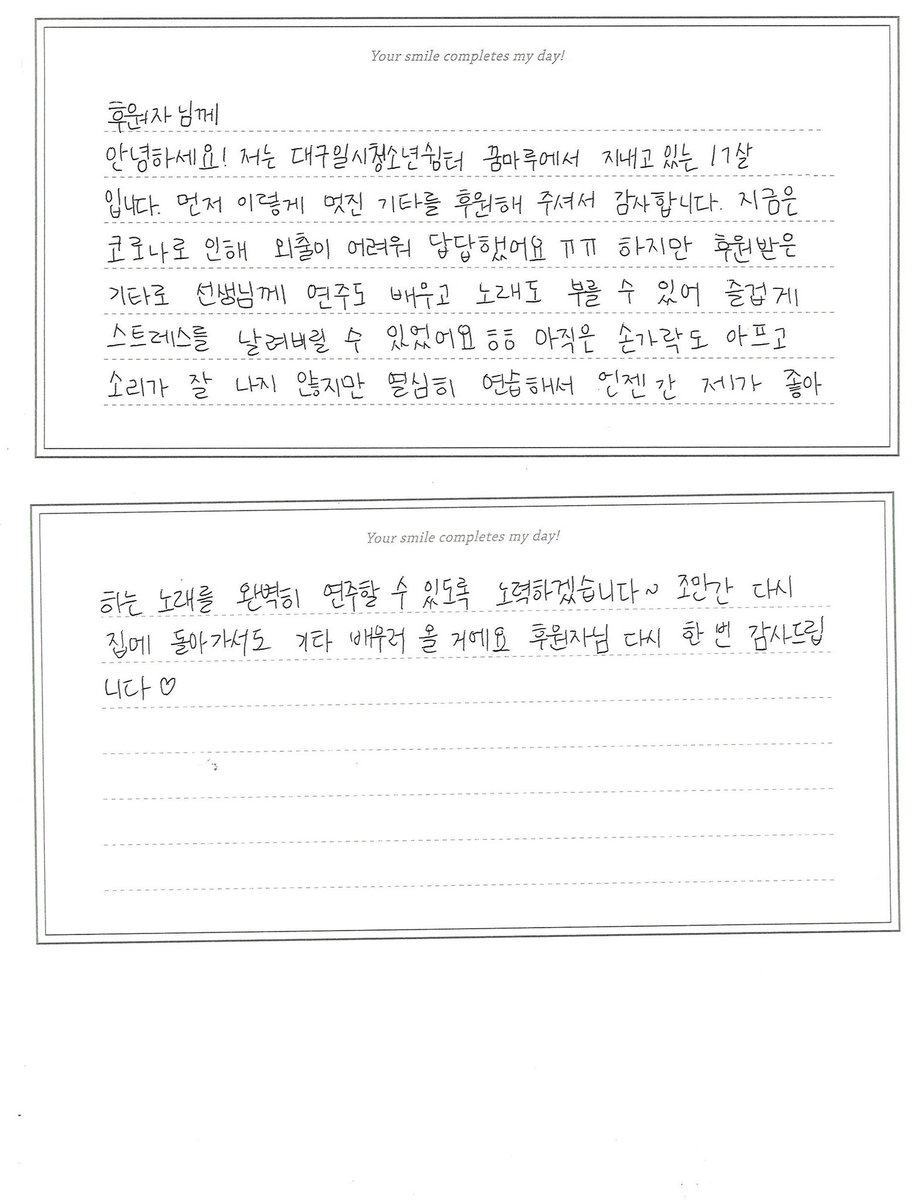 Your smile completes my day!
후원자님께
안녕하세요! 저는 대구일시청소년쉼터 꿈마루에서 지내고 있는 17살
입니다. 먼저 이렇게 멋진 기타를 후원해 주셔서 감사합니다. 지금은
코로나로 인해 외출이 어려워 답답했어요 ㅠㅠ 하지만 후원받은
기타로 선생님께 연주도 배우고 노래도 부를 수 있어 즐겁게
스트레스를 날려버릴 수 있었어요 ㅎㅎ 아직은 손가락도 아프고
소리가 잘 나지 않지만 열심히 연습해서 언젠간 제가 좋아
Your smile completes my day!
하는 노래를 완벽히 연주할 수 있도록 노력하겠습니다~ 조만간 다시
집에 돌아가서도 기타 배우러 올 거에요 후원자님 다시 한 번 감사드립
니다♡